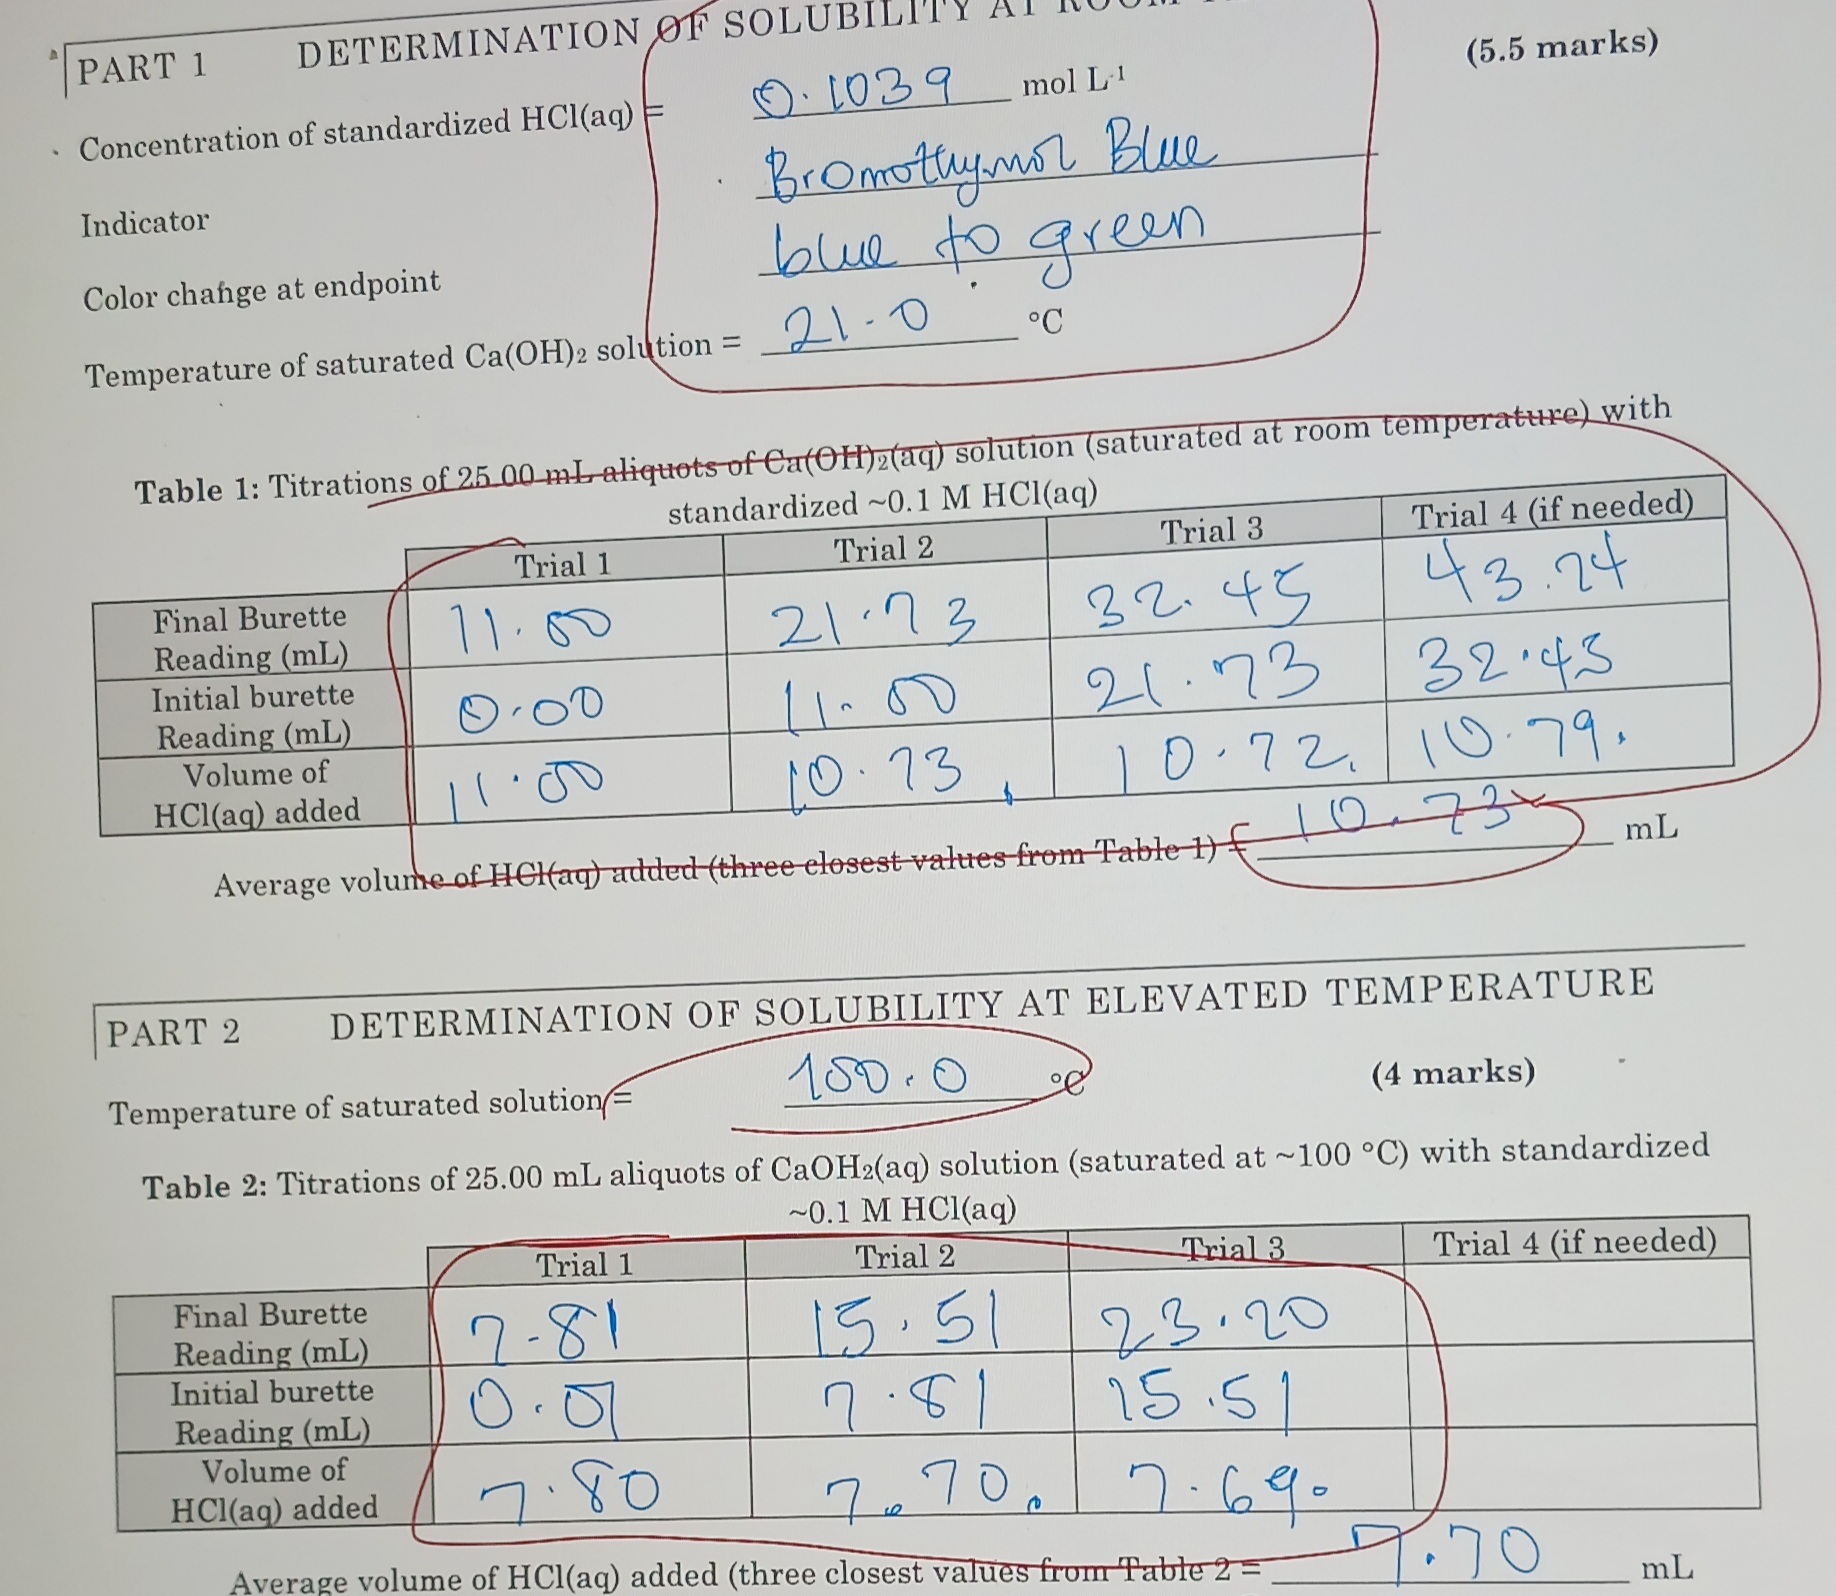 PART 1 DETERMINATION OF SOLUBILITY AT ROOM
(5.5 marks)
Concentration of standardized HCl(aq) = 0.1039 mol L-1
Indicator Bromothymol Blue
Color change at endpoint blue to green
Temperature of saturated Ca(OH)2 solution = 21.0 °C
Table 1: Titrations of 25.00 mL aliquots of Ca(OH)2(aq) solution (saturated at room temperature) with
standardized ~0.1 M HCl(aq)
Trial 1 Trial 2 Trial 3 Trial 4 (if needed)
Final Burette Reading (mL) 11.00 21.73 32.45 43.24
Initial burette Reading (mL) 0.00 11.00 21.73 32.45
Volume of HCl(aq) added 11.00 10.73 10.72 10.79
Average volume of HCl(aq) added (three closest values from Table 1) = 10.73 mL
PART 2 DETERMINATION OF SOLUBILITY AT ELEVATED TEMPERATURE
(4 marks)
Temperature of saturated solution = 100.0 °C
Table 2: Titrations of 25.00 mL aliquots of CaOH2(aq) solution (saturated at ~100 °C) with standardized
~0.1 M HCl(aq)
Trial 1 Trial 2 Trial 3 Trial 4 (if needed)
Final Burette Reading (mL) 7.81 15.51 23.20
Initial burette Reading (mL) 0.01 7.81 15.51
Volume of HCl(aq) added 7.80 7.70 7.69
Average volume of HCl(aq) added (three closest values from Table 2 = 7.70 mL